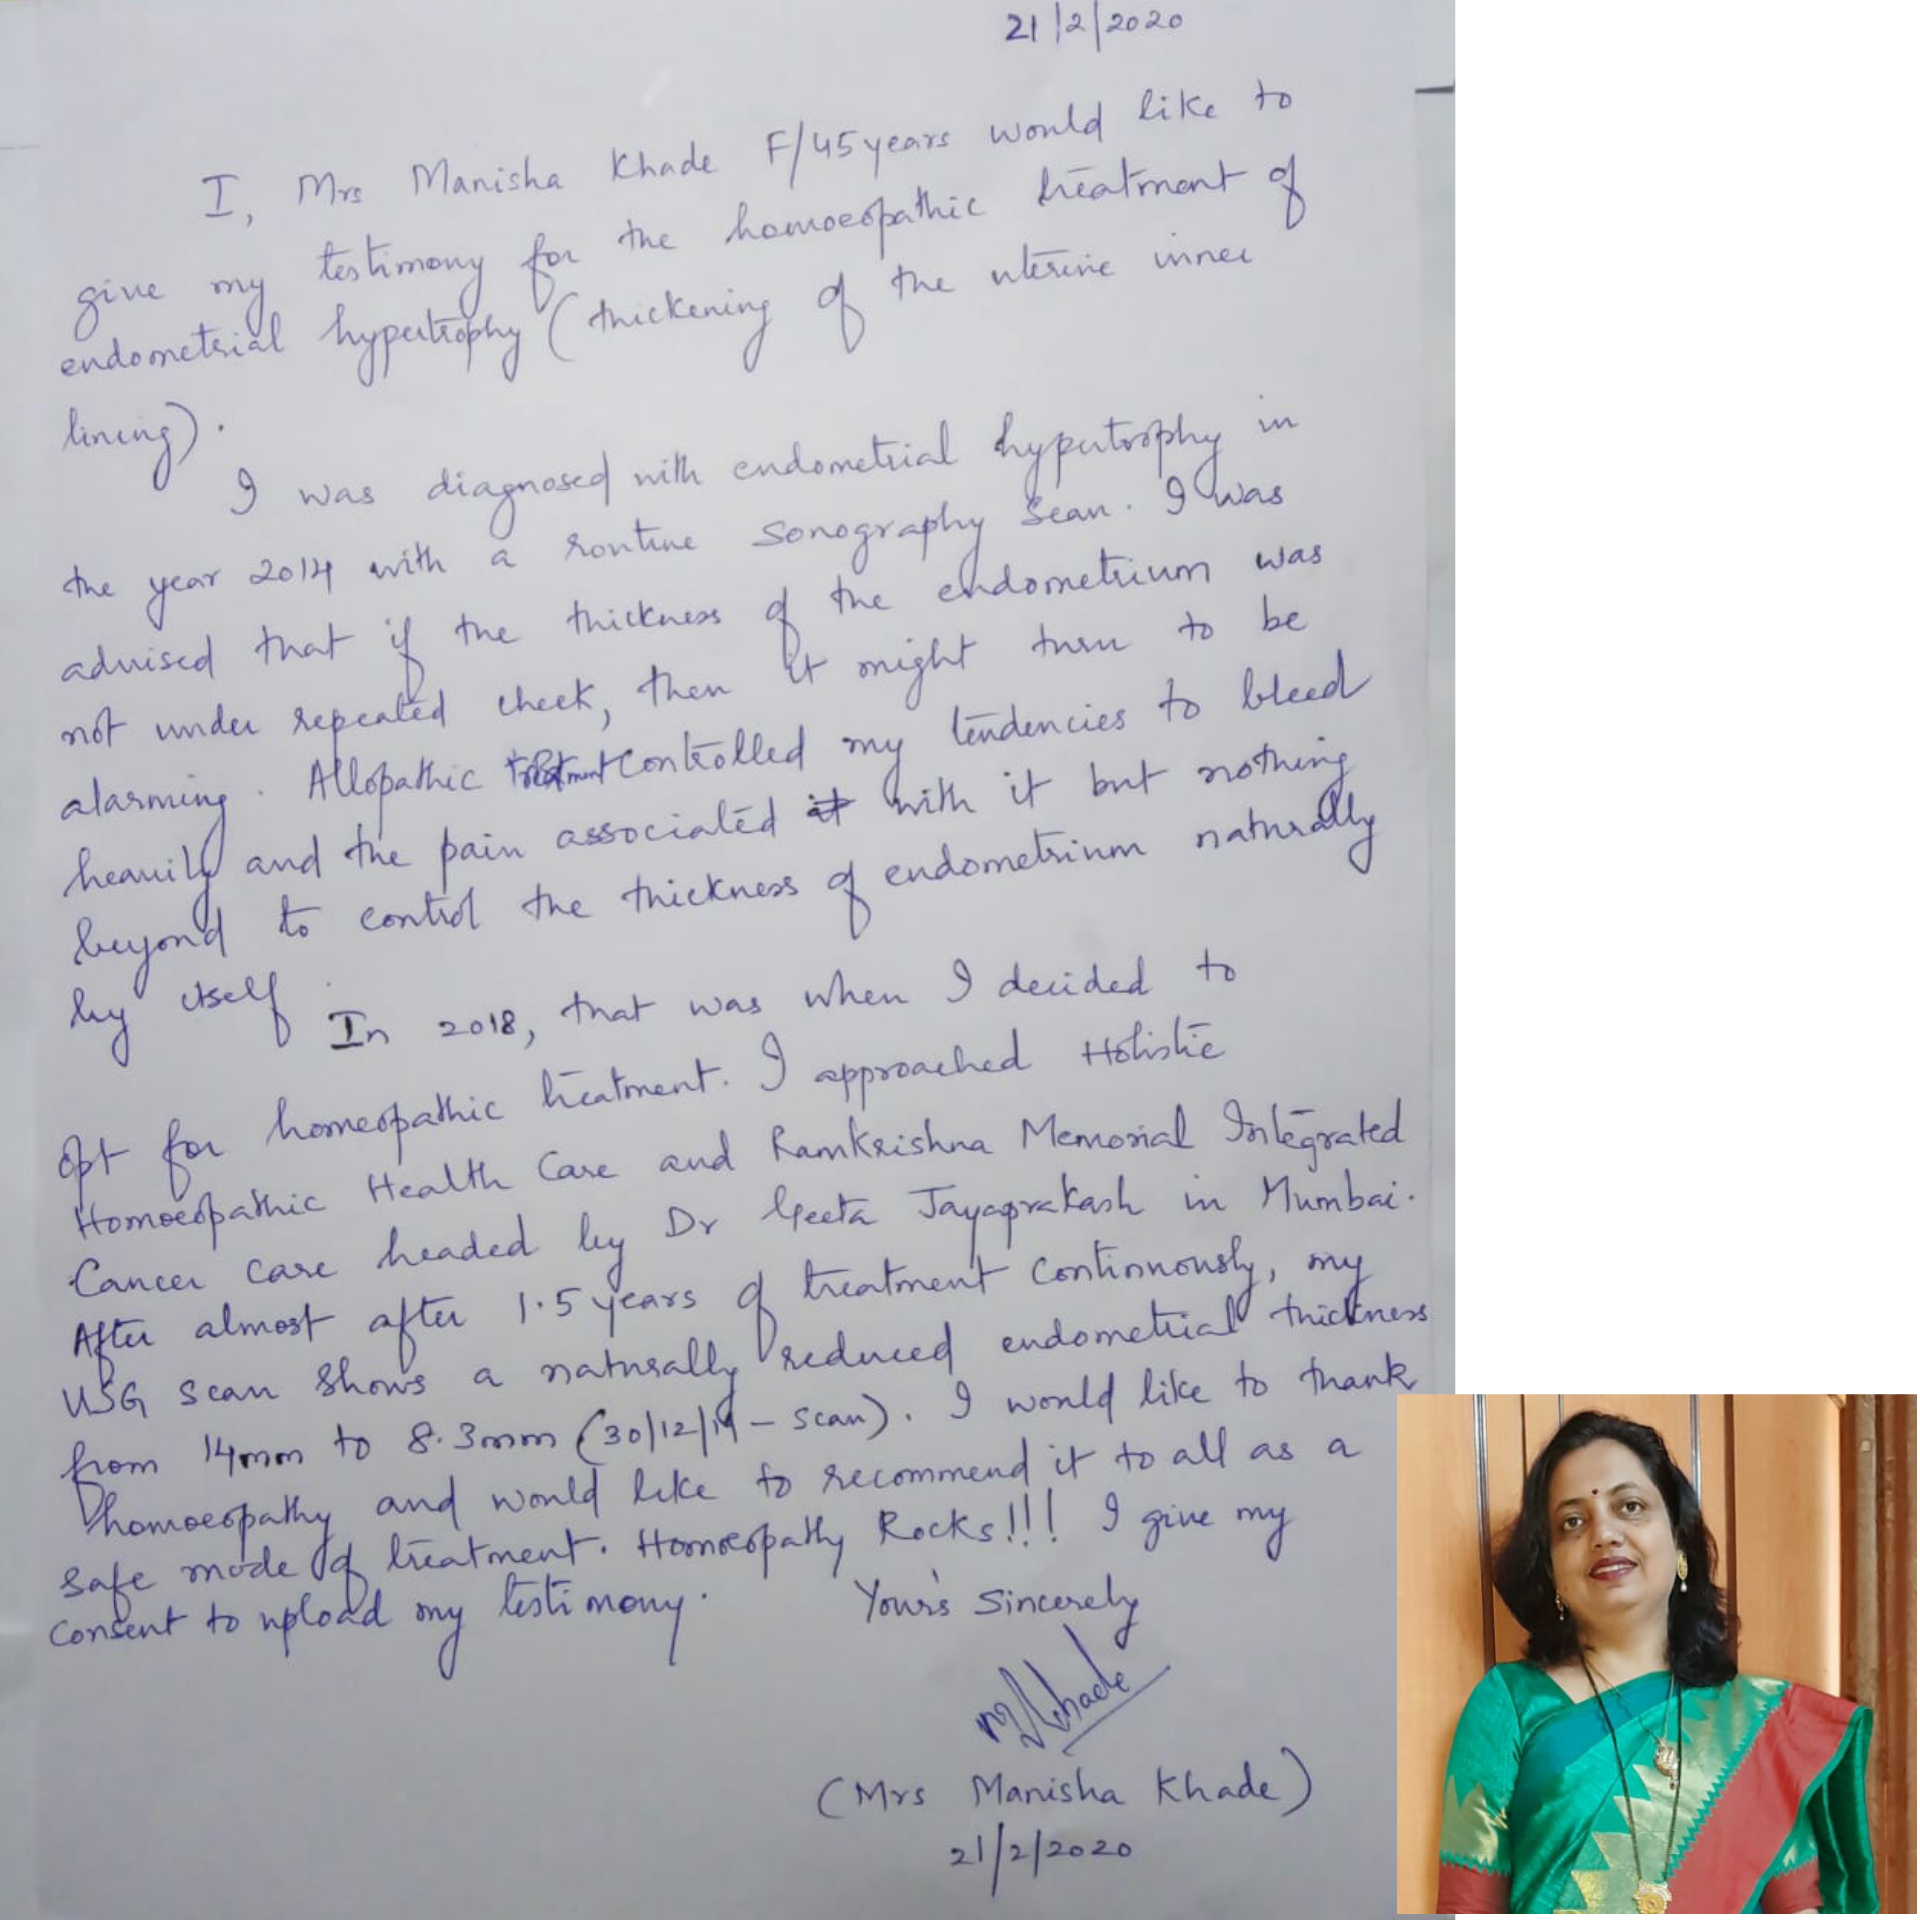 21/2/2020
I, Mrs Manisha Khade F/45years would like to
give my testimony for the homoeopathic treatment of
endometrial hypertrophy (thickening of the uterine inner
lining).
I was diagnosed with endometrial hypertrophy in
the year 2014 with a routine sonography scan. I was
advised that if the thickness of the endometrium was
not under repeated check, then it might turn to be
alarming. Allopathic treatment controlled my tendencies to bleed
heavily and the pain associated it with it but nothing
beyond to control the thickness of endometrium naturally
by itself.
In 2018, that was when I decided to
opt for homeopathic treatment. I approached Holistic
Homoeopathic Health Care and Ramkrishna Memorial Integrated
Cancer care headed by Dr Geeta Jayaprakash in Mumbai.
After almost after 1.5 years of treatment continuously, my
USG scan shows a naturally reduced endometrial thickness
from 14mm to 8.3mm (30/12/19 - scan). I would like to thank
homoeopathy and would like to recommend it to all as a
safe mode of treatment. Homoeopathy Rocks!!! I give my
consent to upload my testimony.
Your's Sincerely
MKhade
(Mrs Manisha Khade)
21/2/2020